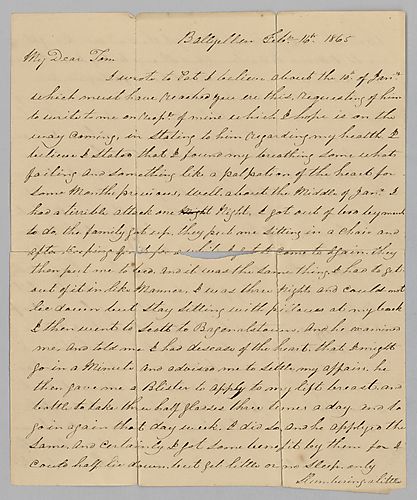 Feby. 16th. 1865
My Dear Tom
I wrote to I believe about the 10th. of Jany.
which must have reached you ere this, requesting of him
to write to me on rcpt of mine which I hope is on the
way coming, in stating to him regarding my health I
believe I stated that I found my breathing some what
failing and something like a palpation of the heart for
some Months previous, Well about the Middle of Jany. I
had a terrible attack one Night Night, I got out of
to do, the family got up, they put me sitting in a Chair and
after keeping for a while I got to come to again. they
then put me to bed, and it was the same thing, I had to get
out of it in like Manner, I was three Nights and could not
lie down but stay sitting with pillows at my back
I then went to to Bagenalstown, And he examined
me, And told me I had disease of the heart, that I might
go in a Minute and advised me to settle my affairs. he
then gave me a Blister to apply to my left breast, and
bottle to take three half glasses three times a day, and to
go in again that day week. I did so, and he applyed the
same, And certainly I got some benefit by them for I
could half lie down but get little or no sleep only
Slumbering a little